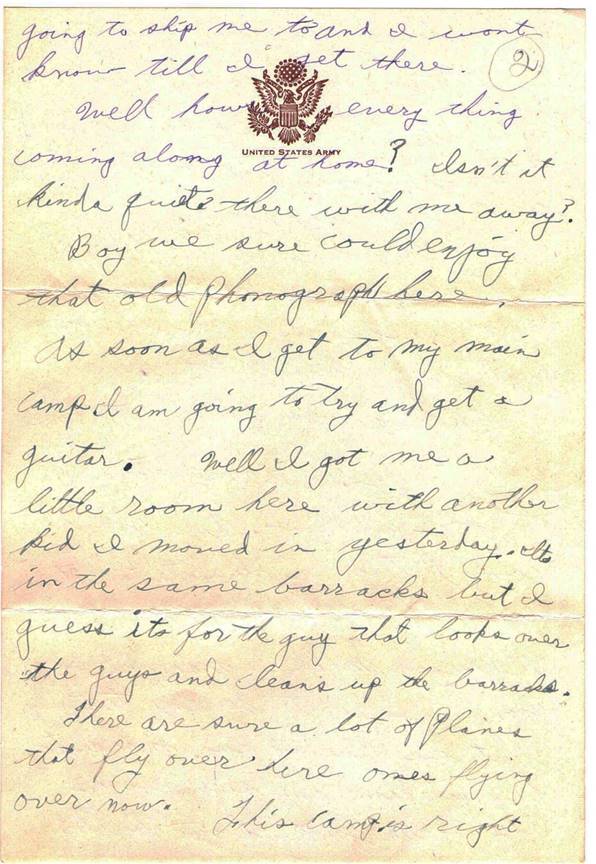 going to ship me to and I wont
know till I get there.
2
Well hows every thing
UNITED STATES ARMY
coming along at home? Isn't it
kinda quite there with me away?
Boy we sure could enjoy
that old phonograph here.
As soon as I get to my main
camp I am going to try and get a
guitar. Well I got me a
little room here with another
kid I moved in yesterday. Its
in the same barracks but I
guess its for the guy that looks over
the guys and cleans up the barracks.
There are sure a lot of Planes
that fly over here ones flying
over now. This camp is right